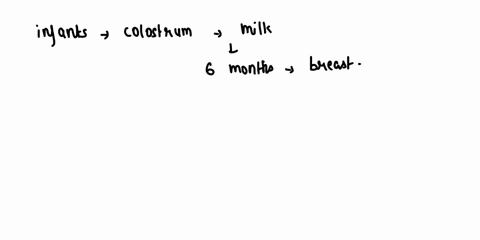 infants → colostrum → milk
↓
6 months → breast.